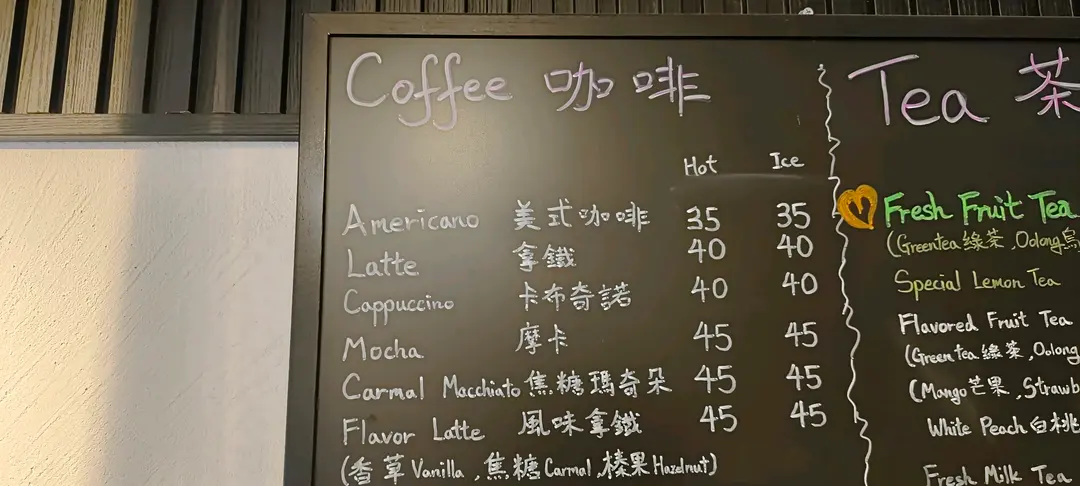 Coffee 咖啡
Hot Ice
Americano 美式咖啡 35 35
Latte 拿鐵 40 40
Cappuccino 卡布奇諾 40 40
Mocha 摩卡 45 45
Carmal Macchiato 焦糖瑪奇朵 45 45
Flavor Latte 風味拿鐵 45 45
(香草Vanilla, 焦糖Carmal, 榛果Hazelnut)
Tea 茶
Fresh Fruit Tea
(Greentea 綠茶, Oolong烏
Special Lemon Tea
Flavored Fruit Tea
(Green tea 綠茶, Oolong
(Mango芒果, Strawb
White Peach白桃
Fresh Milk Tea